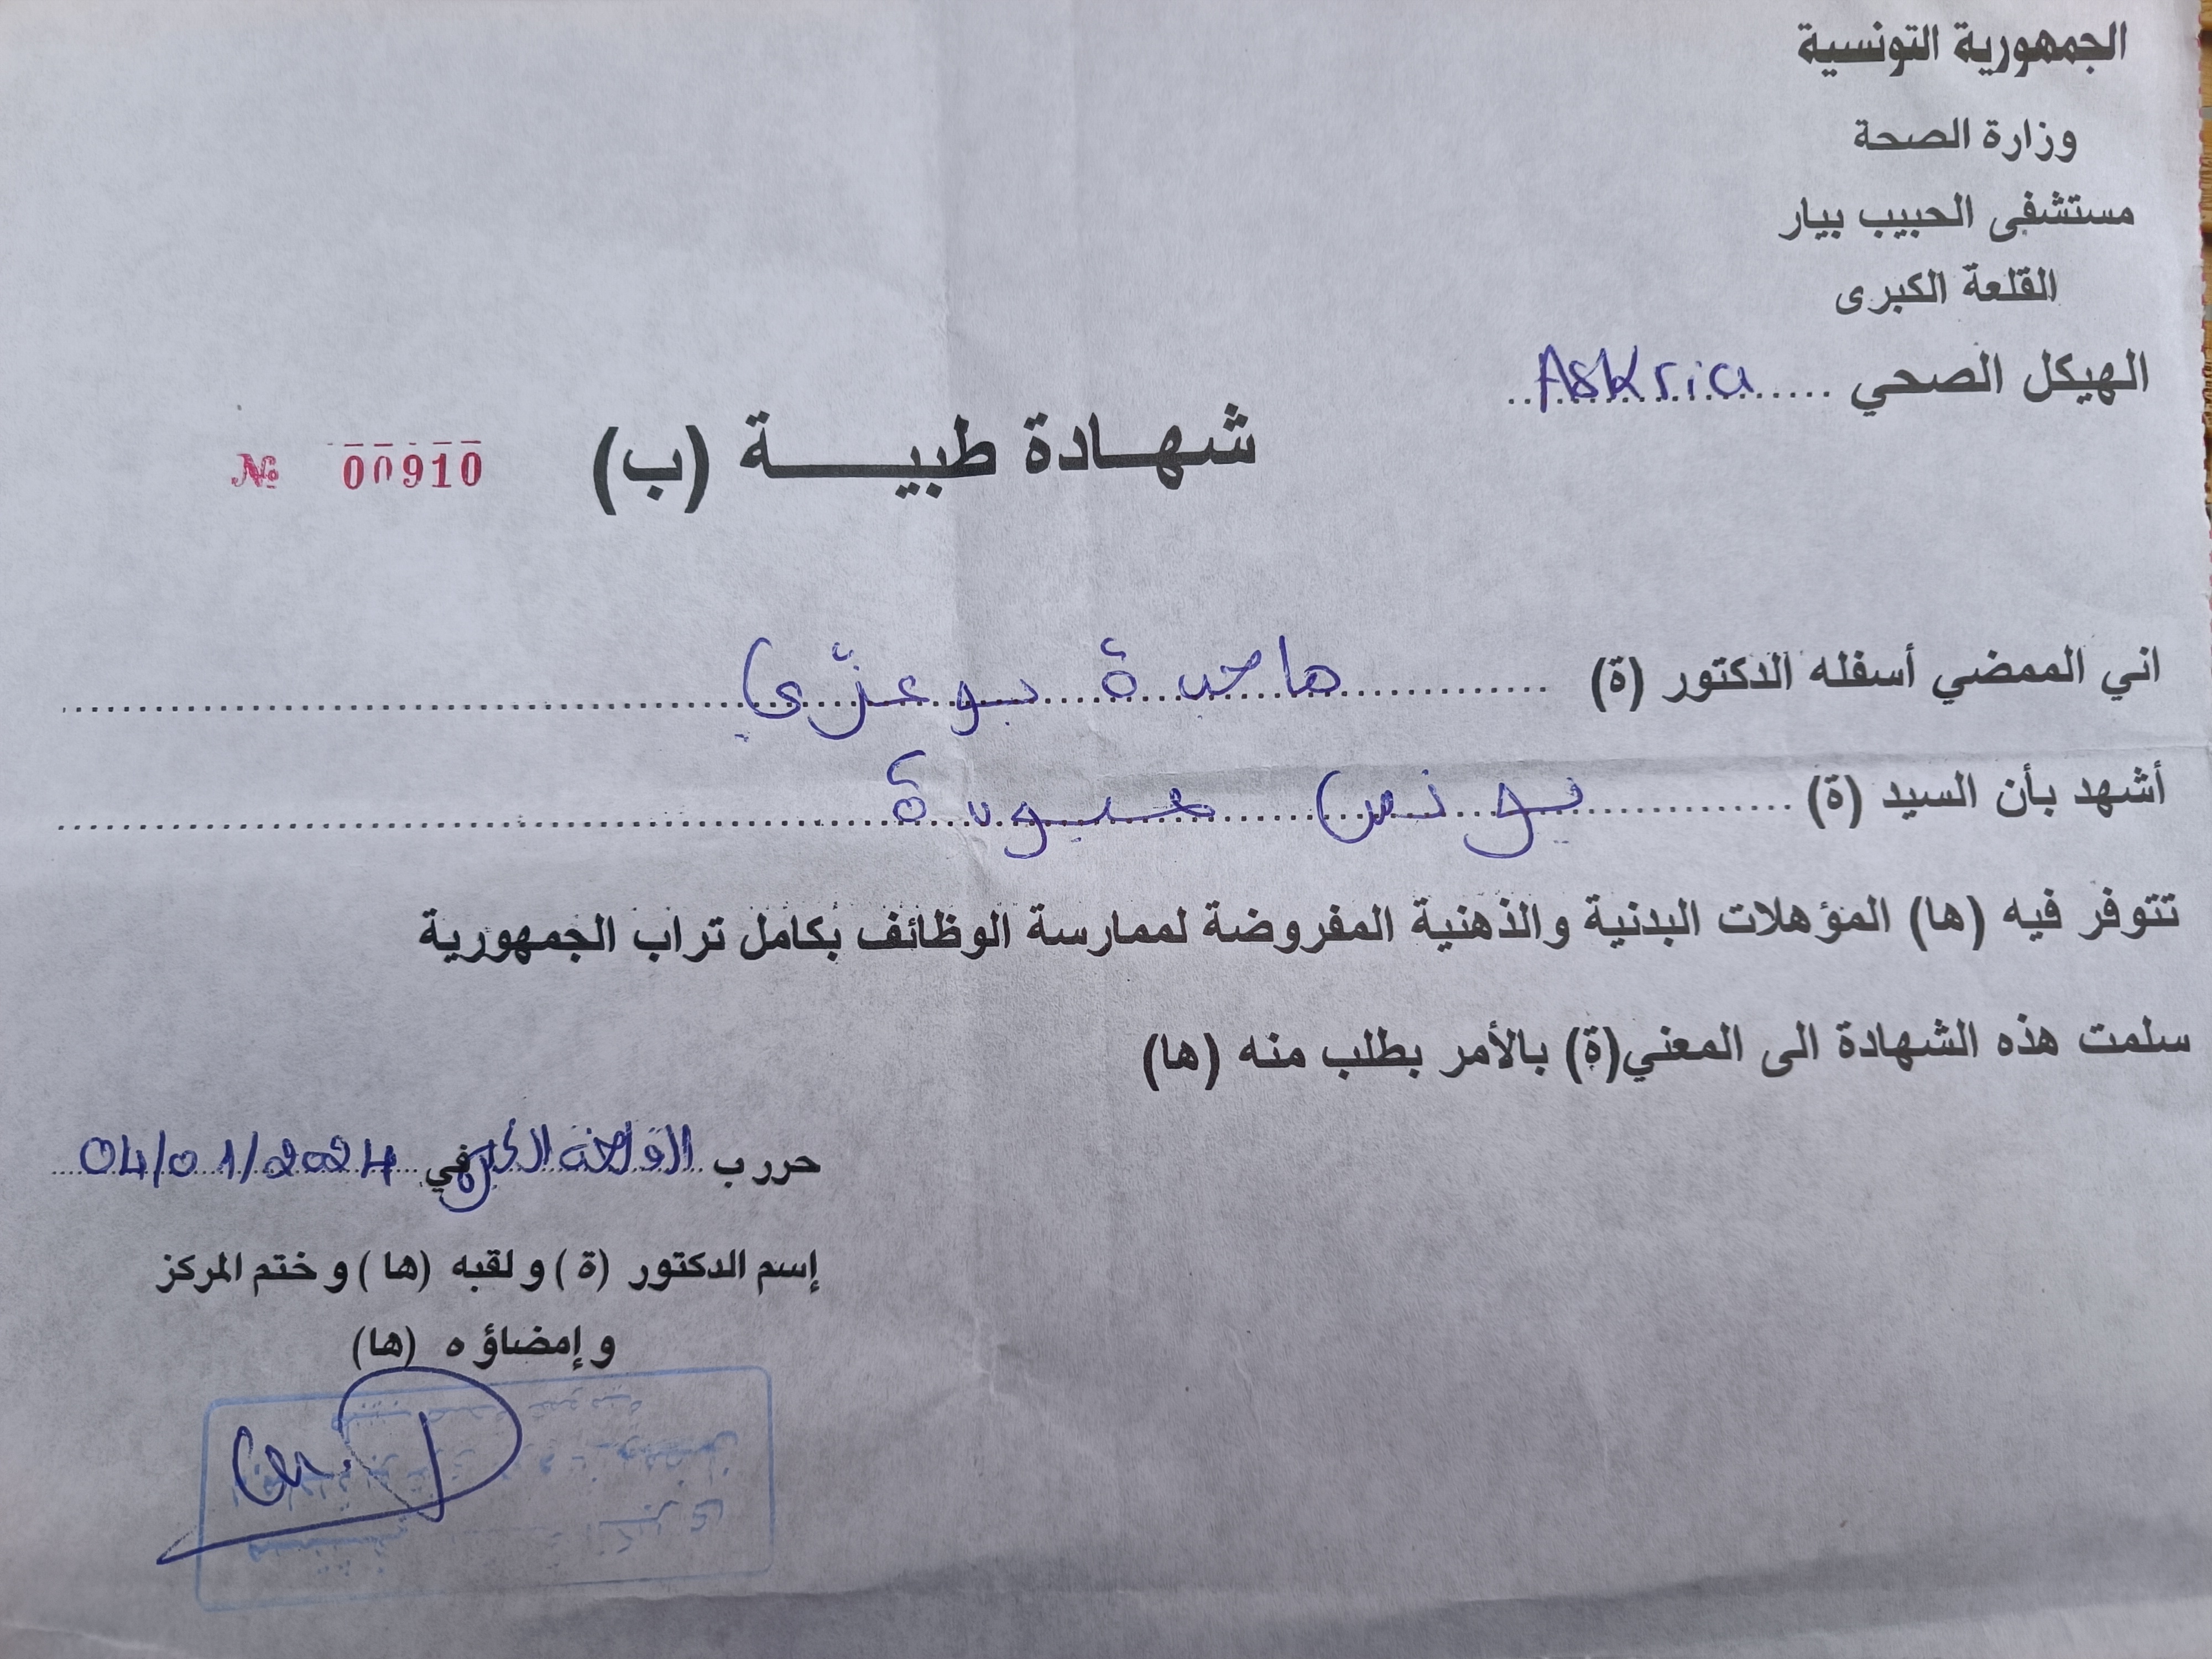 الجمهورية التونسية
وزارة الصحة
مستشفى الحبيب بيار
القلعة الكبرى
الهيكل الصحي Askria
شهادة طبية (ب)
№ 00910
اني الممضي أسفله الدكتور (ة) هاجرة بوعزّي
أشهد بأن السيد (ة) يونس
تتوفر فيه (ها) المؤهلات البدنية والذهنية المفروضة لممارسة الوظائف بكامل تراب الجمهورية
سلمت هذه الشهادة الى المعني(ة) بالأمر بطلب منه (ها)
حرر ب القلعة الكبرى في 04/01/2024
إسم الدكتور (ة) و لقبه (ها) و ختم المركز
و إمضاؤه (ها)